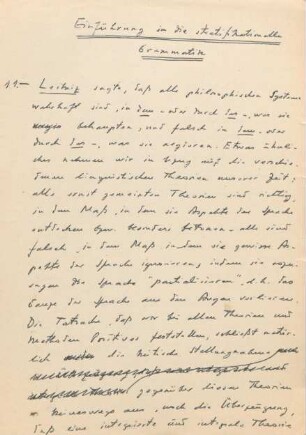 Einführung in die strukturfunktionelle
Grammatik
1.1.— Leibniz sagte, daß alle philosophischen Systeme
wahrhaft sind, in dem – oder durch das –, was sie
behaupten, und falsch in dem – oder
durch das –, was sie negieren. Etwas Ähnli-
ches nehmen wir in bezug auf die verschie-
denen linguistischen Theorien unserer Zeit:
alle ernst gemeinten Theorien sind richtig
in dem Maß, in dem sie Aspekte der Sprache
entdecken bzw. besonders betonen – alle sind
falsch, in dem Maß in dem sie gewisse As-
pekte der Sprache ignorieren, indem sie sozu-
sagen die Sprache "partialisieren", d.h. das
Ganze der Sprache aus den Augen verlieren.
Die Tatsache, daß wir bei allen Theorien und
Methoden Positives feststellen, schließt natür-
lich die kritische Stellungnahme
gegenüber diesen Theorien
keineswegs aus, noch die Überzeugung,
daß eine integrierte und integrale Theorie